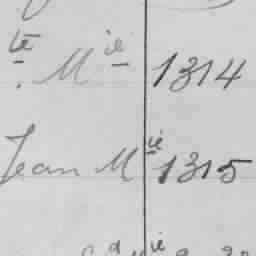 té . M ie 1314
Jean M ie 1315